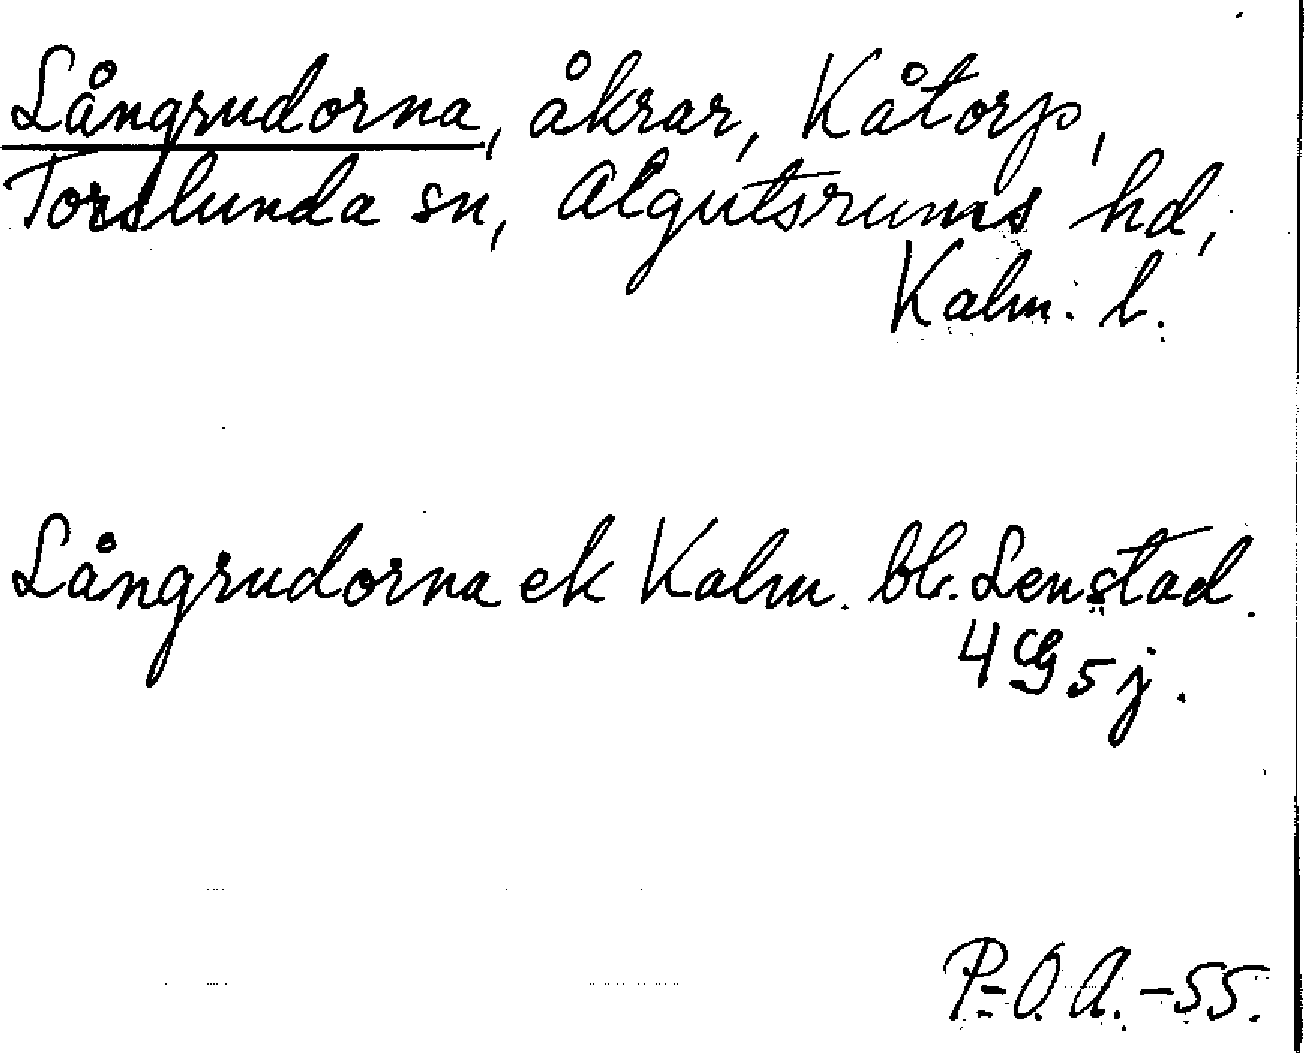 Långrudorna, åkrar, Kåtorp,
Torslunda sn, Algutsrums hd,
Kalm. l.
Långrudorna ek Kalm. bl. Lenstad.
4 G 5 j.
P-O.A.-55.